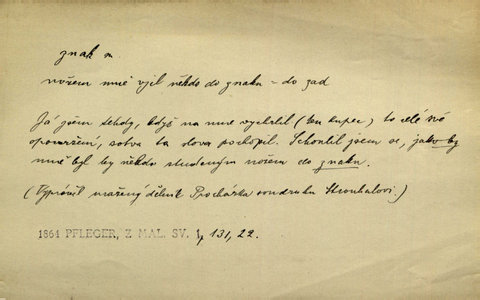 znak m.
nožem mně vjel někdo do znaku – do zad
Já jsem tehdy, když na mne vychrlil (ten kupec) to celé své
opovržení, sotva ta slova pochopil. Schoulil jsem se, jako by
mně byl by někdo studeným nožem do znaku.
(Vyprávěl mařený dělník Procházka soudruhu Strouhalovi.)
1864 PFLEGER, Z MAL. SV. 1, 131, 22.